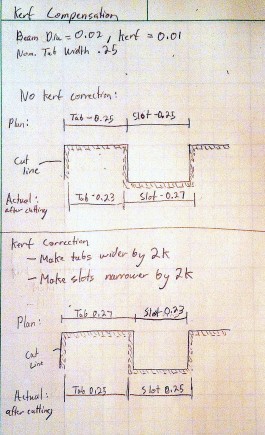 Kerf Compensation
Beam Dia = 0.02, kerf = 0.01
Nom. Tab Width .25
No kerf correction:
Plan: Tab-0.25 Slot-0.25
Cut line
Actual: after cutting Tab-0.23 Slot-0.27
Kerf Correction
- Make tabs wider by 2k
- Make slots narrower by 2k
Plan: Tab 0.27 Slot 0.23
Cut Line
Actual: after cutting Tab 0.25 Slot 0.25